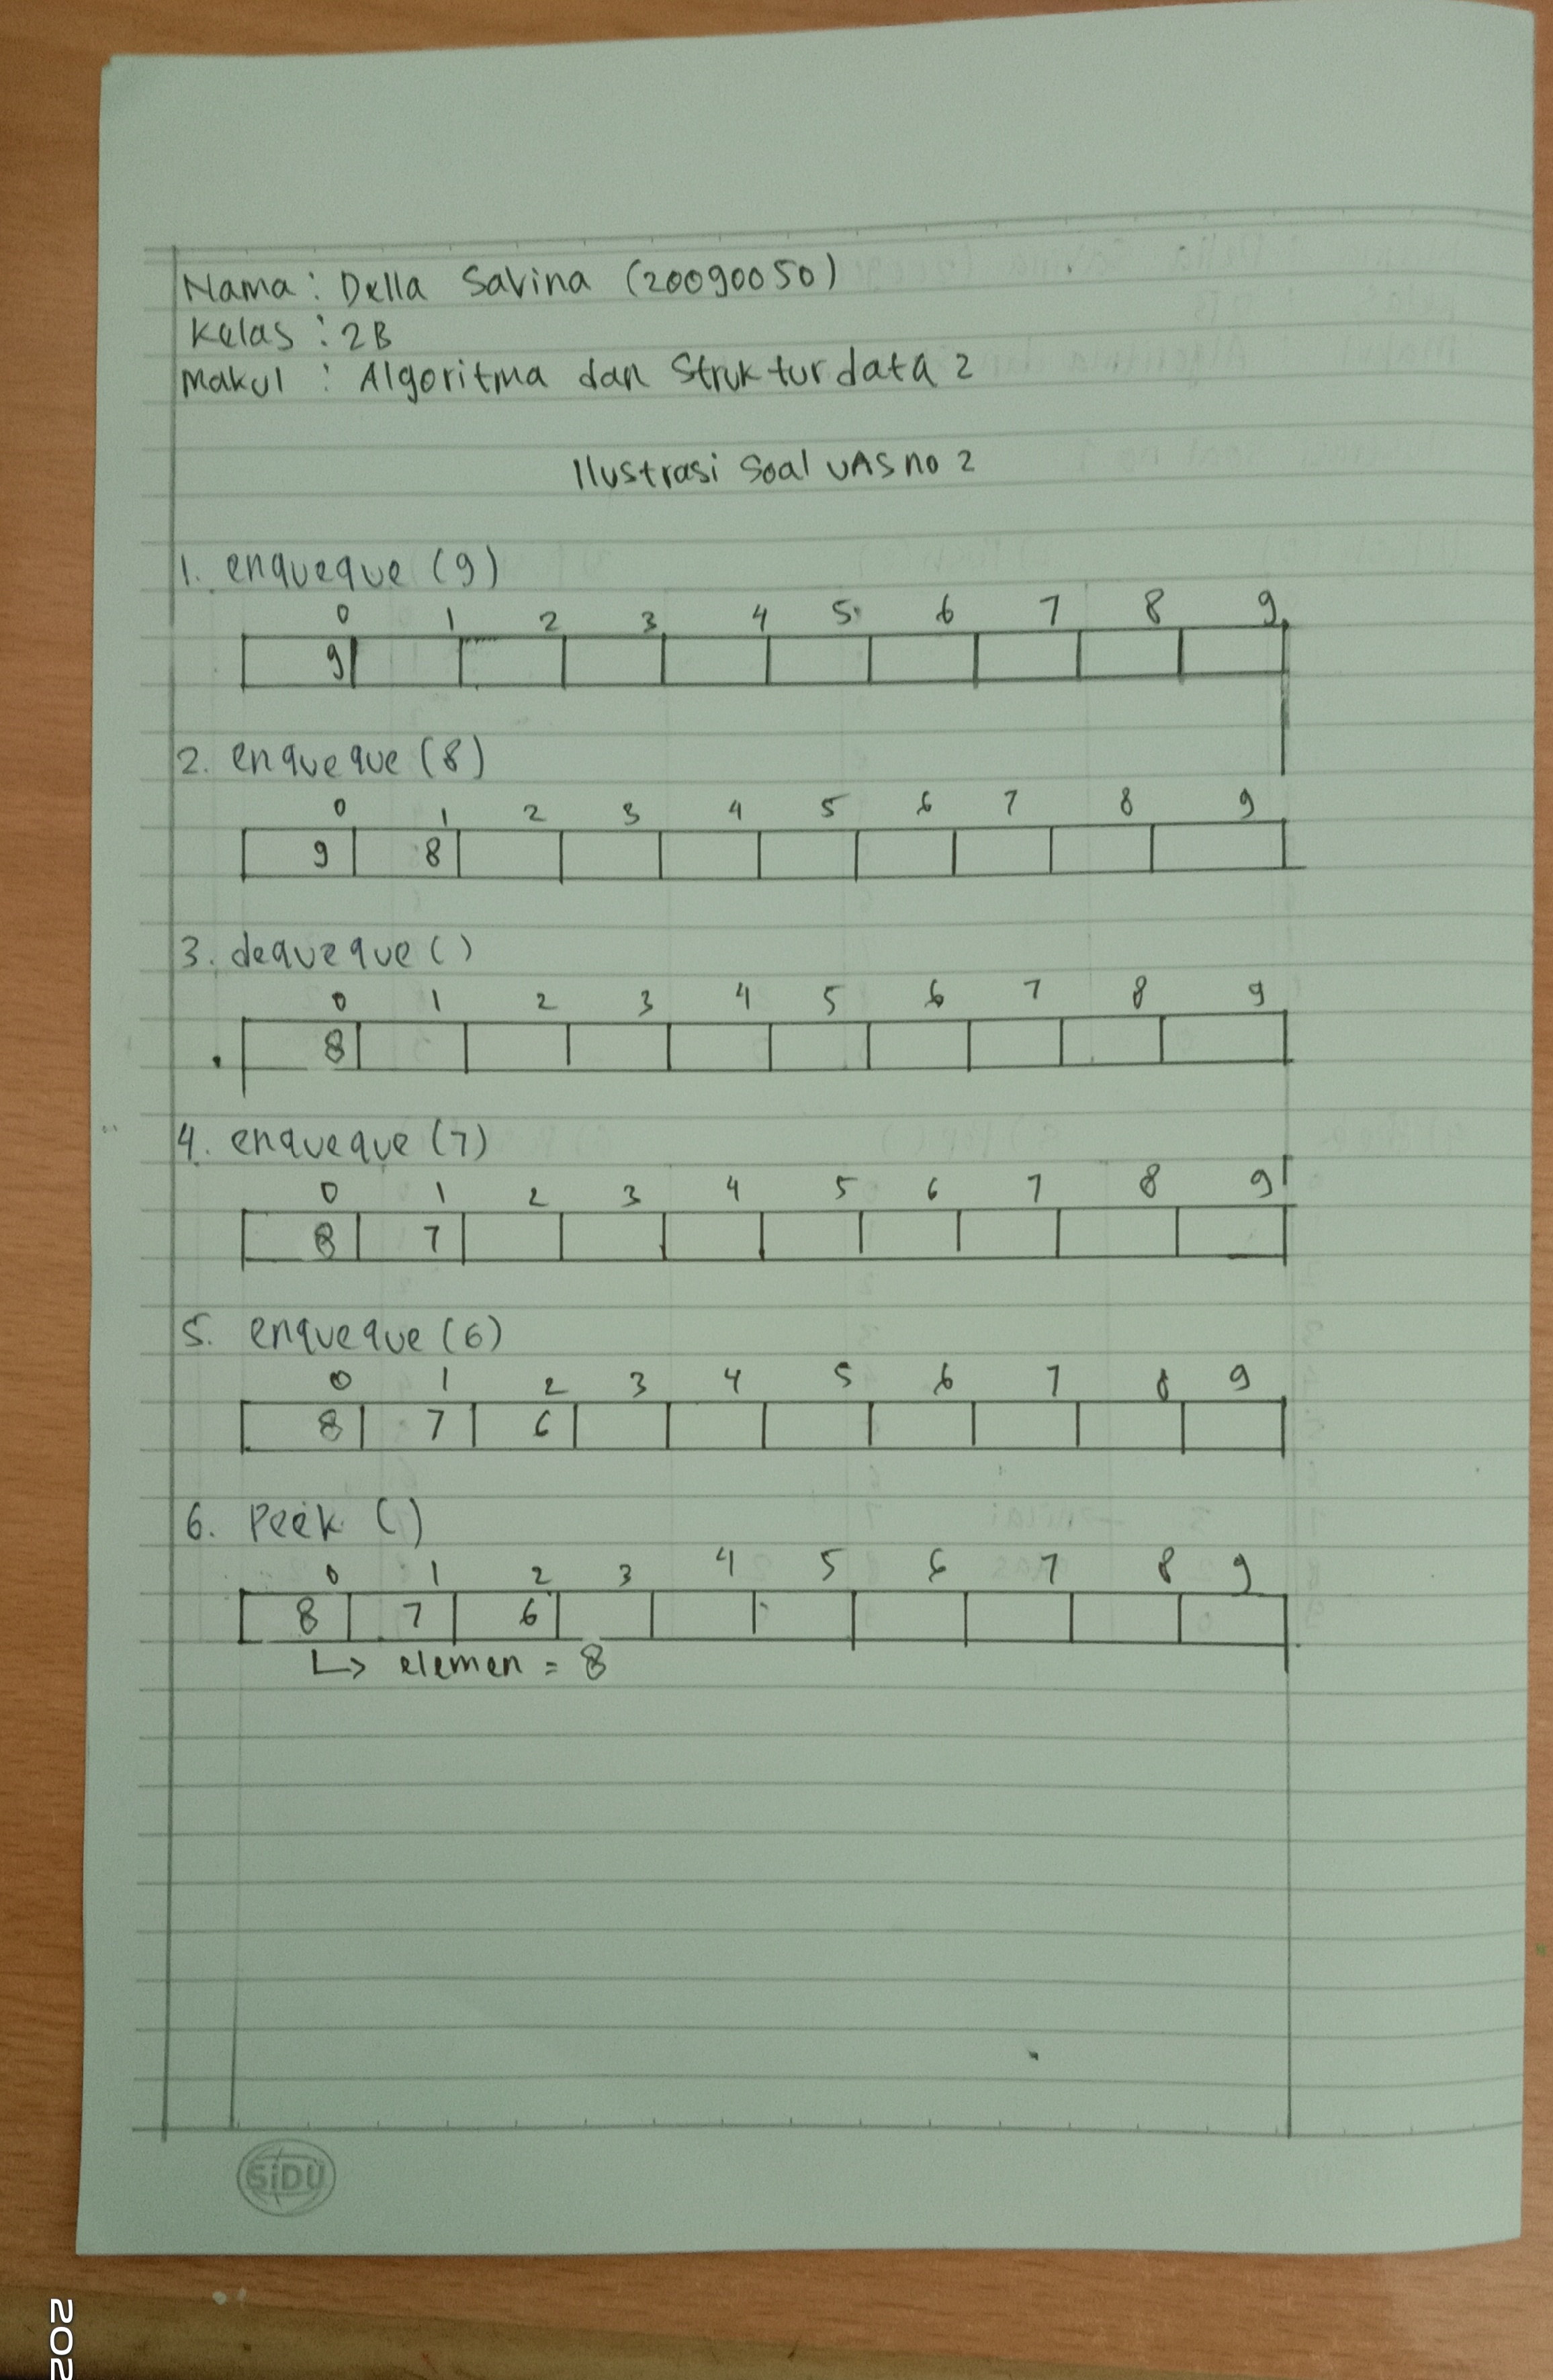 Nama : Della Savina (20090050)
Kelas : 2B
Makul : Algoritma dan Struktur data 2
Ilustrasi Soal UAS no 2
1. enqueque (9)
0 1 2 3 4 5 6 7 8 9
9
2. enqueque (8)
0 1 2 3 4 5 6 7 8 9
9 8
3. dequeque ()
0 1 2 3 4 5 6 7 8 9
8
4. enqueque (7)
0 1 2 3 4 5 6 7 8 9
8 7
5. enqueque (6)
0 1 2 3 4 5 6 7 8 9
8 7 6
6. Peek ()
0 1 2 3 4 5 6 7 8 9
8 7 6
↳ elemen = 8
SiDU
202